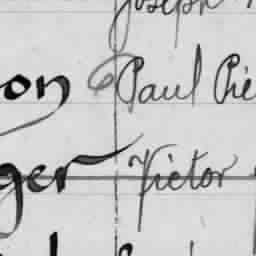 Joseph
on Paul Pie
ger Victor